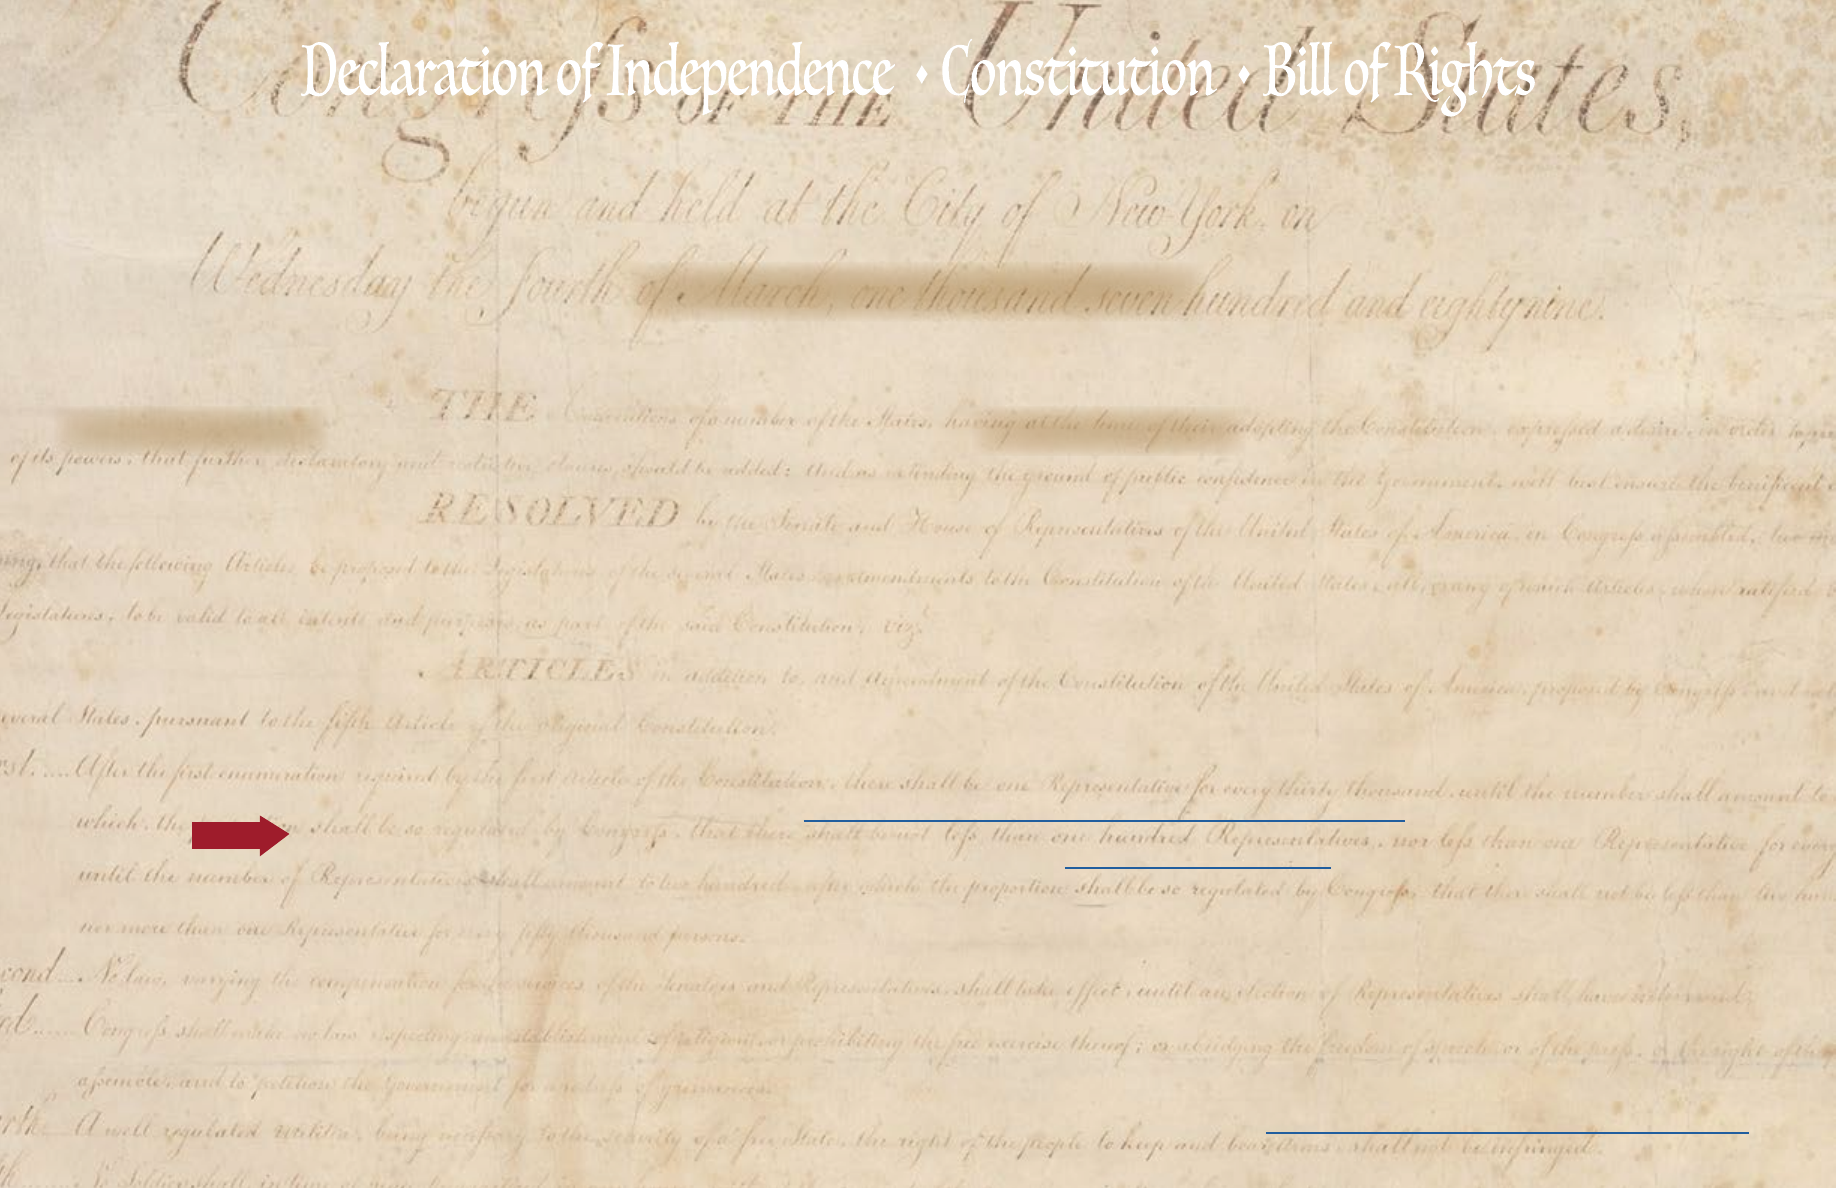 Declaration of Independence ⬧ Constitution ⬧ Bill of Rights
Congreſs OF THE United States,
begun and held at the City of New-York, on
Wednesday the fourth of March, one thousand seven hundred and eighty nine.
THE Conventions of a number of the States, having at the time of their adopting the Constitution, expressed a desire, in order to
of its powers, that further declaratory and restrictive clauses should be added: And as extending the ground of public confidence in the Government, will best ensure the beneficent
RESOLVED by the Senate and House of Representatives of the United States of America, in Congreſs aſsembled, two
ing, that the following Articles be proposed to the Legislatures of the several States, as amendments to the Constitution of the United States, all, or any of which Articles, when ratified
Legislatures, to be valid to all intents and purposes, as part of the said Constitution; viz.t
ARTICLES in addition to, and Amendment of the Constitution of the United States of America, proposed by Congreſs and
everal States, pursuant to the fifth Article of the original Constitution.
st..... After the first enumeration required by the first Article of the Constitution, there shall be one Representative for every thirty thousand, until the number shall amount to
which, the shall be so regulated by Congreſs, that there shall be not leſs than one hundred Representatives, nor leſs than one Representative for every
until the number of Representatives shall amount to two hundred, after which the proportion shall be so regulated by Congreſs, that there shall not be leſs than two
nor more than one Representative for every fifty thousand persons.
cond.... No law, varying the compensation for the services of the Senators and Representatives, shall take effect, until an election of Representatives shall have intervened.
Congreſs shall make no law respecting an establishment of religion, or prohibiting the free exercise thereof; or abridging the freedom of speech, or of the preſs, or the right of the
aſsemble, and to petition the Government for a redreſs of grievances.
A well regulated militia, being neceſsary to the security of a free State, the right of the people to keep and bear arms, shall not be infringed.
No Soldier shall, in time of